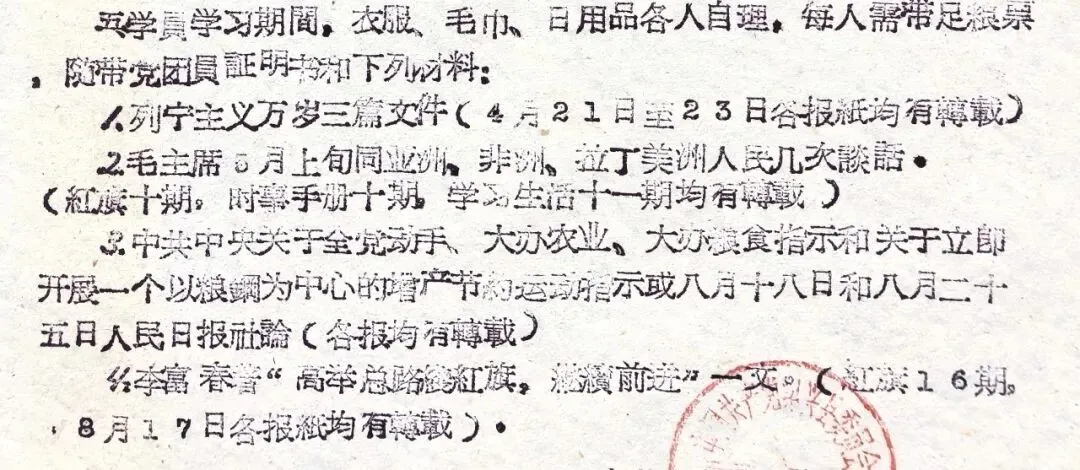 五学員学习期間，衣服、毛巾、日用品各人自理，每人需带足粮票
，随带党团員証明书和下列材料：
1.列宁主义万岁三篇文件（4月21日至23日各报紙均有轉載）
2.毛主席5月上旬同亚洲、非洲、拉丁美洲人民几次談話。
（紅旗十期，时事手册十期，学习生活十一期均有轉載）
3.中共中央关于全党动手、大办农业、大办粮食指示和关于立即
开展一个以粮鋼为中心的增产节約运动指示或八月十八日和八月二十
五日人民日报社論（各报均有轉載）
4.李富春著“高举总路綫紅旗，継續前进”一文。（紅旗16期，
8月17日各报紙均有轉載）。